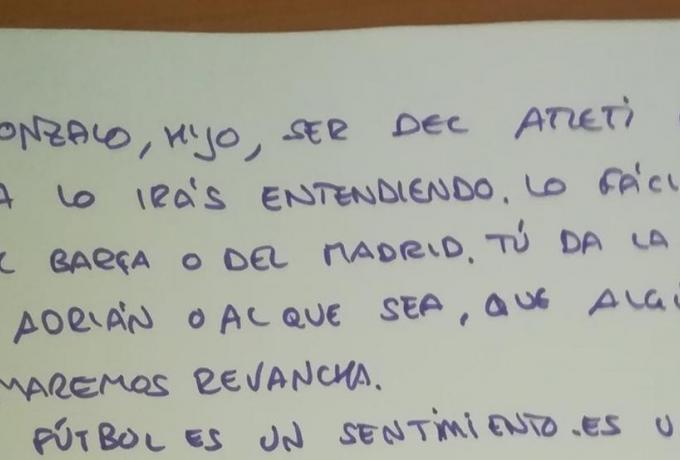 ONZALO, HIJO, SER DEL ATLETI
A LO IRÁS ENTENDIENDO. LO FÁCI
L BARÇA O DEL MADRID. TÚ DA LA
ADRIÁN O AL QUE SEA, QUE ALGÚ
MAREMOS REVANCHA.
FÚTBOL ES UN SENTIMIENTO. ES U